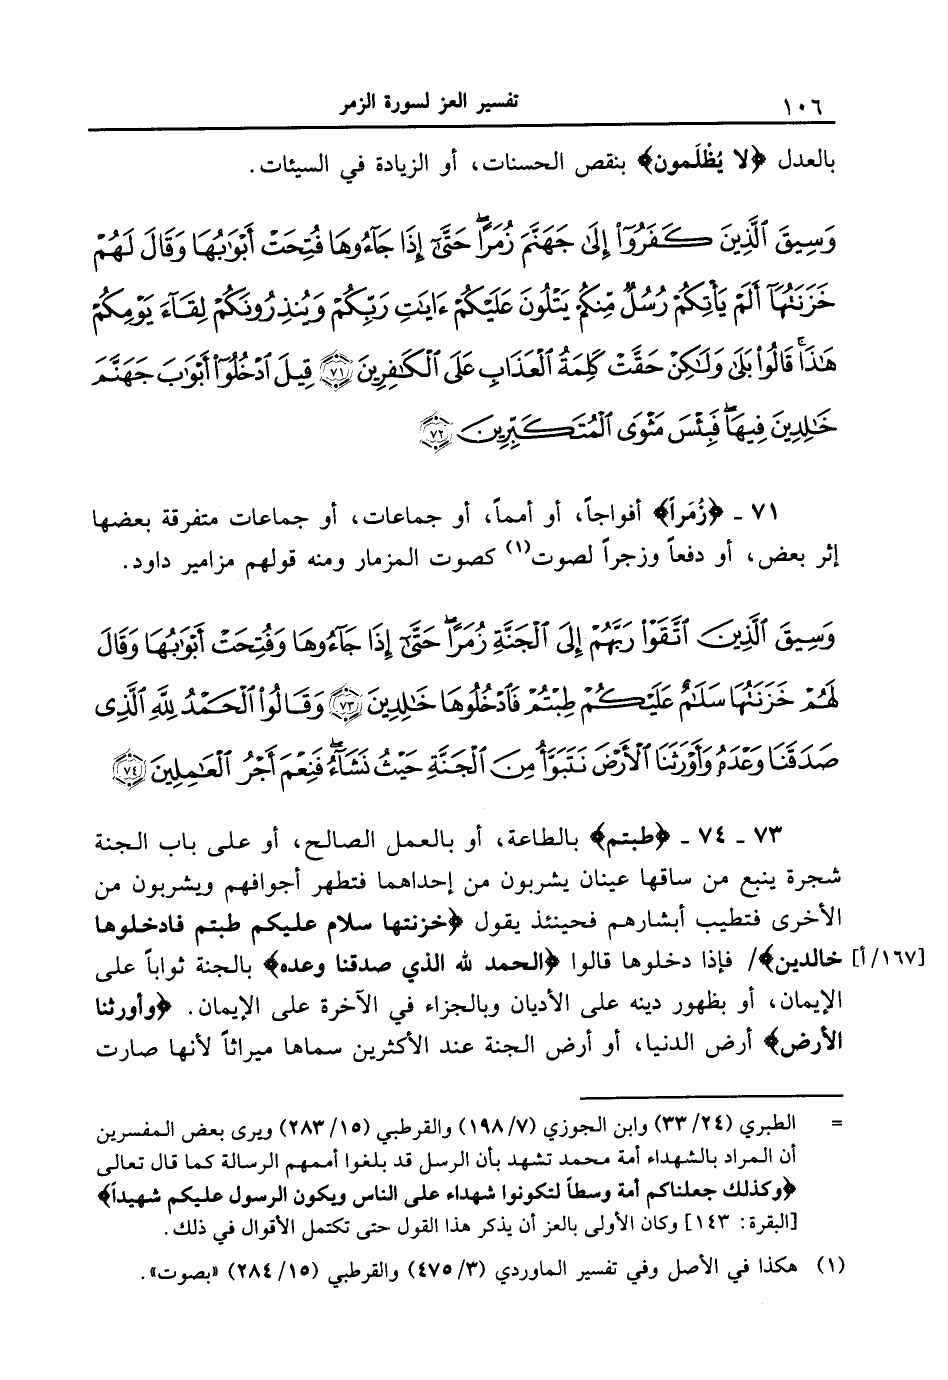 ١٠٦ تفسير العز لسورة الزمر
بالعدل ﴿لا يُظْلَمون﴾ بنقص الحسنات، أو الزيادة في السيئات.
وَسِيقَ ٱلَّذِينَ كَفَرُوٓا۟ إِلَىٰ جَهَنَّمَ زُمَرًا ۖ حَتَّىٰٓ إِذَا جَآءُوهَا فُتِحَتْ أَبْوَٰبُهَا وَقَالَ لَهُمْ
خَزَنَتُهَآ أَلَمْ يَأْتِكُمْ رُسُلٌ مِّنكُمْ يَتْلُونَ عَلَيْكُمْ ءَايَٰتِ رَبِّكُمْ وَيُنذِرُونَكُمْ لِقَآءَ يَوْمِكُمْ
هَٰذَا ۚ قَالُوا۟ بَلَىٰ وَلَٰكِنْ حَقَّتْ كَلِمَةُ ٱلْعَذَابِ عَلَى ٱلْكَٰفِرِينَ ﴿٧١﴾ قِيلَ ٱدْخُلُوٓا۟ أَبْوَٰبَ جَهَنَّمَ
خَٰلِدِينَ فِيهَا ۖ فَبِئْسَ مَثْوَى ٱلْمُتَكَبِّرِينَ ﴿٧٢﴾
٧١ - ﴿زُمَراً﴾ أفواجاً، أو أمماً، أو جماعات، أو جماعات متفرقة بعضها
إثر بعض، أو دفعاً وزجراً لصوت(١) كصوت المزمار ومنه قولهم مزامير داود.
وَسِيقَ ٱلَّذِينَ ٱتَّقَوْا۟ رَبَّهُمْ إِلَى ٱلْجَنَّةِ زُمَرًا ۖ حَتَّىٰٓ إِذَا جَآءُوهَا وَفُتِحَتْ أَبْوَٰبُهَا وَقَالَ
لَهُمْ خَزَنَتُهَا سَلَٰمٌ عَلَيْكُمْ طِبْتُمْ فَٱدْخُلُوهَا خَٰلِدِينَ ﴿٧٣﴾ وَقَالُوا۟ ٱلْحَمْدُ لِلَّهِ ٱلَّذِى
صَدَقَنَا وَعْدَهُۥ وَأَوْرَثَنَا ٱلْأَرْضَ نَتَبَوَّأُ مِنَ ٱلْجَنَّةِ حَيْثُ نَشَآءُ ۖ فَنِعْمَ أَجْرُ ٱلْعَٰمِلِينَ ﴿٧٤﴾
٧٣ - ٧٤ - ﴿طبتم﴾ بالطاعة، أو بالعمل الصالح، أو على باب الجنة
شجرة ينبع من ساقها عينان يشربون من إحداهما فتطهر أجوافهم ويشربون من
الأخرى فتطيب أبشارهم فحينئذ يقول ﴿خزنتها سلام عليكم طبتم فادخلوها
[١٦٧/أ] خالدين﴾/ فإذا دخلوها قالوا ﴿الحمد لله الذي صدقنا وعده﴾ بالجنة ثواباً على
الإيمان، أو بظهور دينه على الأديان وبالجزاء في الآخرة على الإيمان. ﴿وأورثنا
الأرض﴾ أرض الدنيا، أو أرض الجنة عند الأكثرين سماها ميراثاً لأنها صارت
= الطبري (٣٣/٢٤) وابن الجوزي (١٩٨/٧) والقرطبي (٢٨٣/١٥) ويرى بعض المفسرين
أن المراد بالشهداء أمة محمد تشهد بأن الرسل قد بلغوا أممهم الرسالة كما قال تعالى
﴿وكذلك جعلناكم أمة وسطاً لتكونوا شهداء على الناس ويكون الرسول عليكم شهيداً﴾
[البقرة: ١٤٣] وكان الأولى بالعز أن يذكر هذا القول حتى تكتمل الأقوال في ذلك.
(١) هكذا في الأصل وفي تفسير الماوردي (٤٧٥/٣) والقرطبي (٢٨٤/١٥) «بصوت».